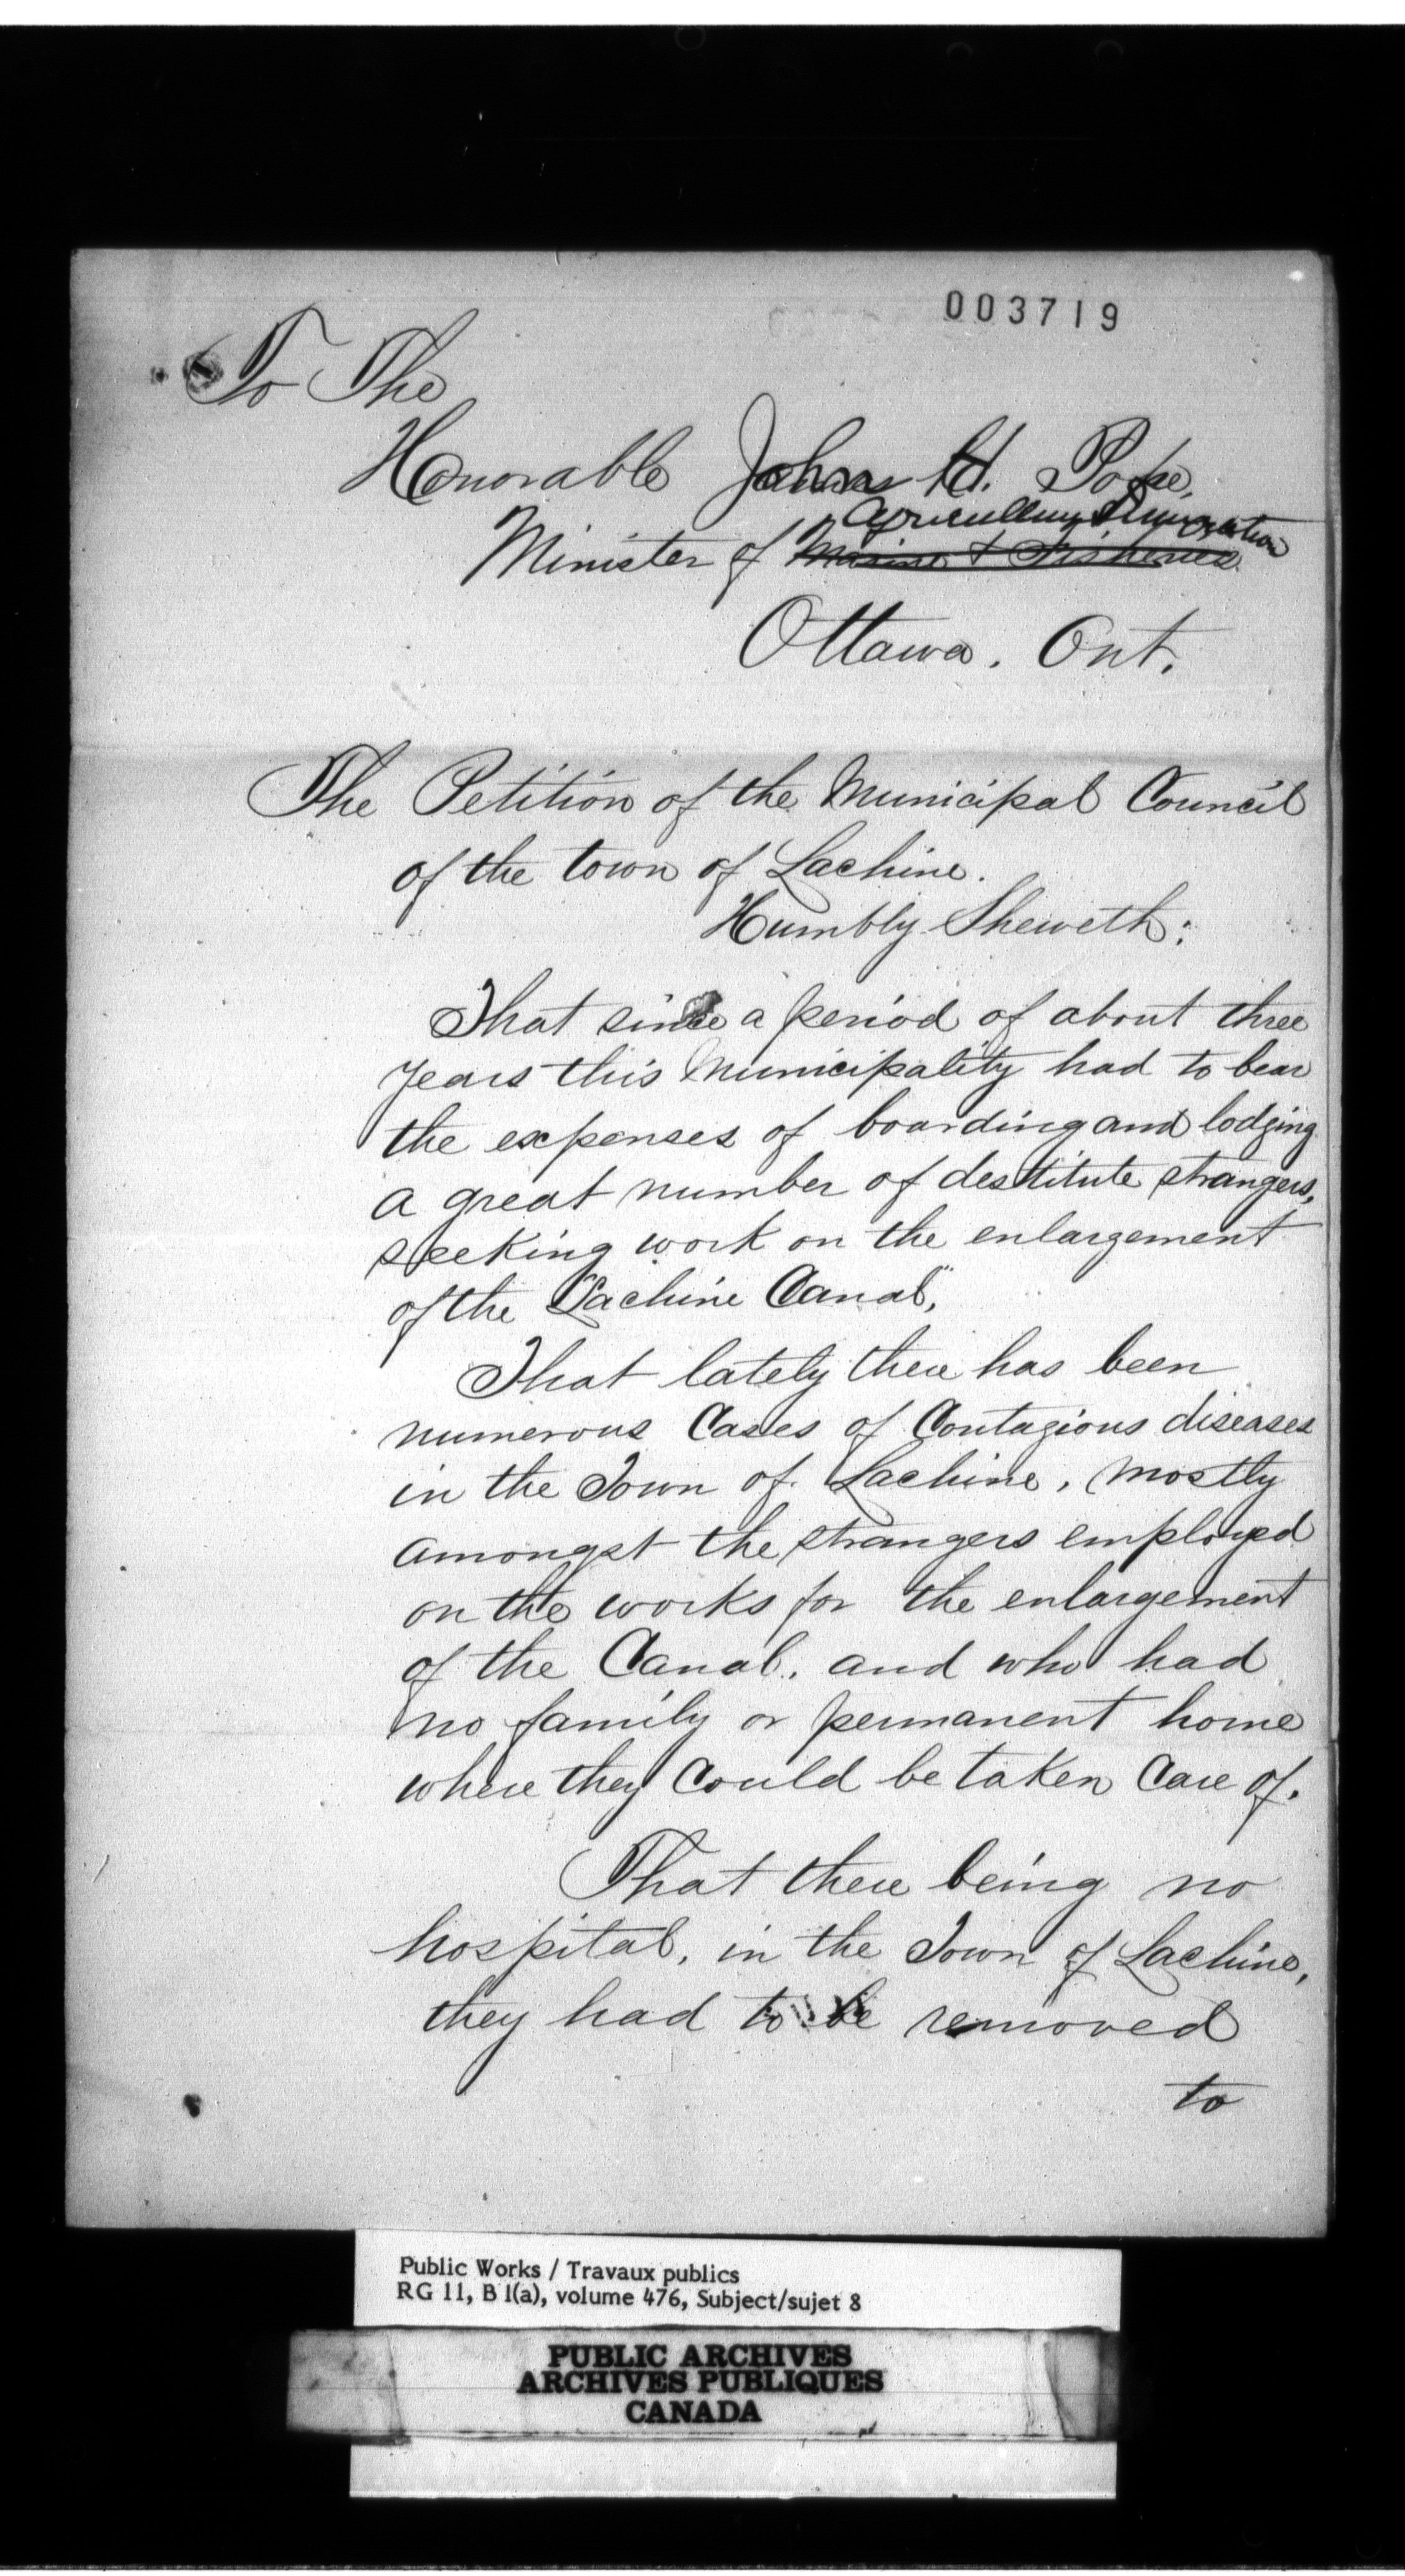 003719
To The
Honorable John H. Pope,
Agriculture & Immigration
Minister of Marine & Fisheries
Ottawa. Ont.
The Petition of the Municipal Council
of the town of Lachine.
Humbly Sheweth:
That since a period of about three
years this Municipality had to bear
the expenses of boarding and lodging
a great number of destitute strangers,
seeking work on the enlargement
of the "Lachine Canal",
That lately there has been
numerous Cases of Contagious diseases
in the Town of Lachine, mostly
amongst the strangers employed
on the works for the enlargement
of the Canal, and who had
no family or permanent home
where they Could be taken Care of.
That there being no
hospital, in the Town of Lachine,
they had to be removed
to
Public Works / Travaux publics
RG 11, B 1(a), volume 476, Subject/sujet 8
PUBLIC ARCHIVES
ARCHIVES PUBLIQUES
CANADA